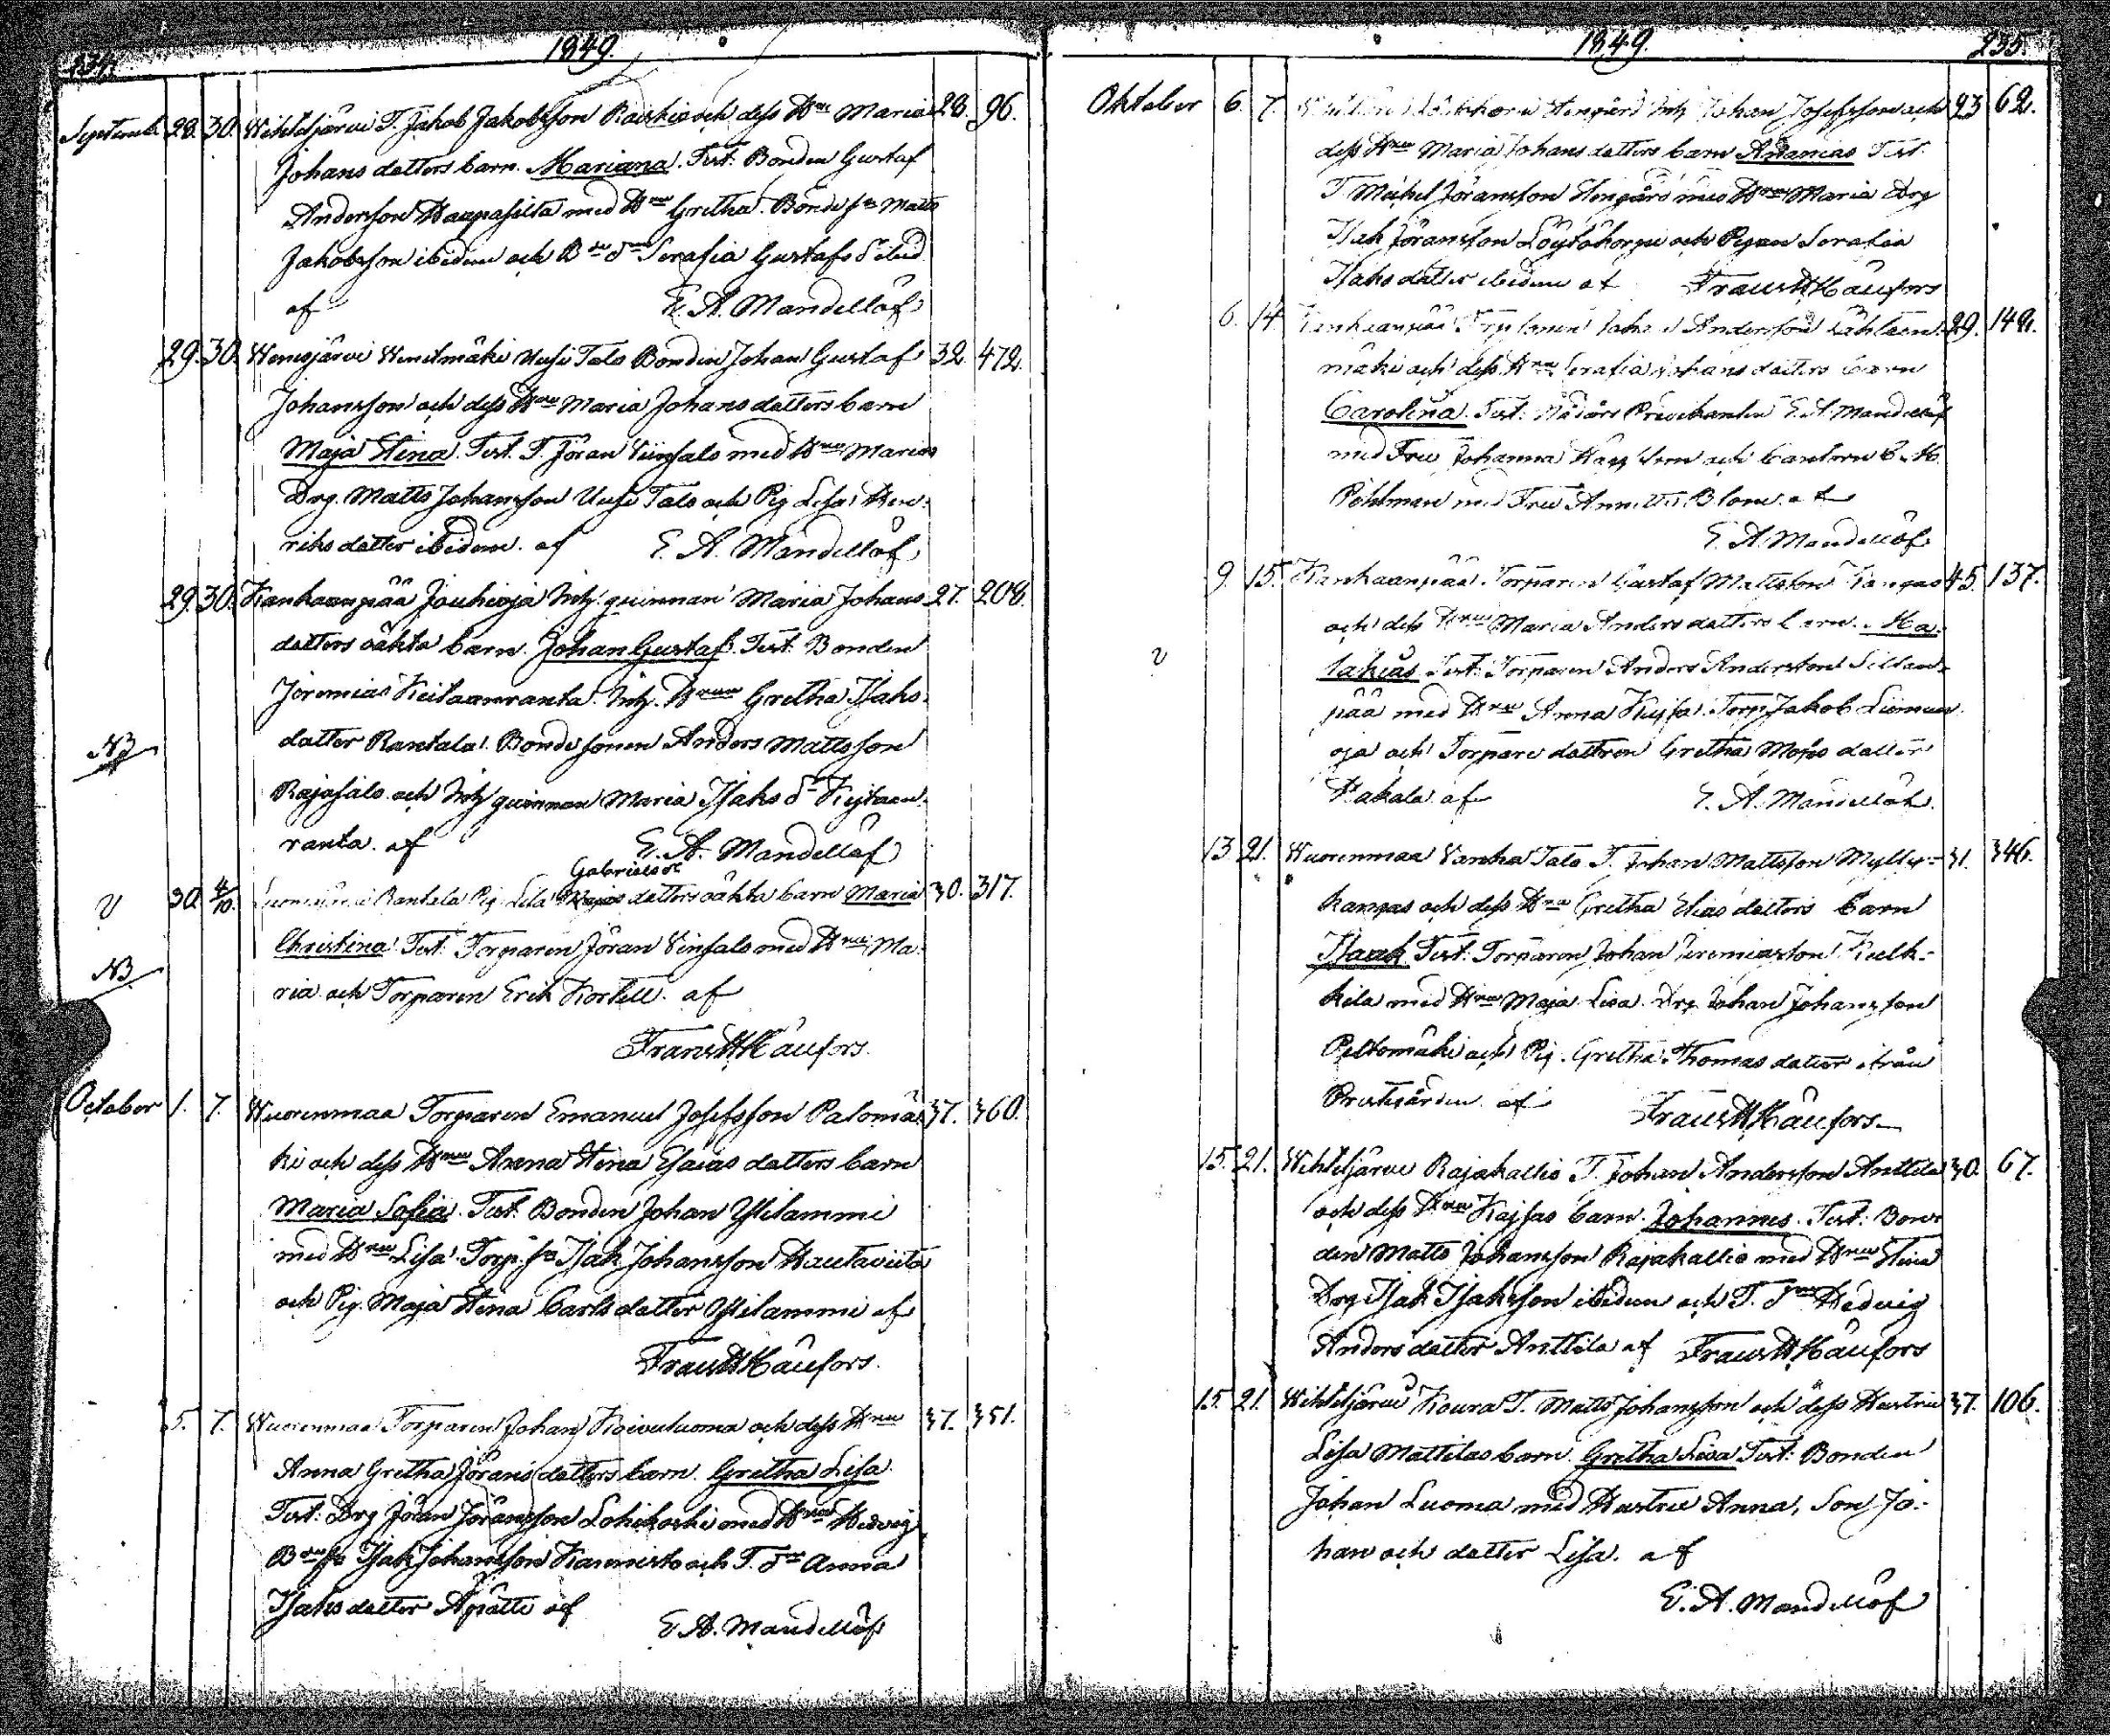 234. 1849.
Septemb. 28. 30. Wihteljärvi T. Jakob Jakobsson Raiskio och dess Hru Maria 28. 96.
Johans dotters barn. Mariana. Test: Bonden Gustaf
Andersson Haapasilta med Hru Gretha. Bonde sn Matts
Jakobsson ibidem och Bde dr Serafia Gustafs d ibid.
af E. A. Mandellöf
29. 30. Wenesjärvi Uusi Talo Bonden Johan Gustaf 32. 472.
Johansson och dess Hru Maria Johans dotters barn
Maja Stina. Test. T. Jöran Viinsalo med Hru Maria
Drg. Matts Johansson Uusi Talo och Pig Lisa Hen-
riks dotter ibidem. af E. A. Mandellöf
29. 30. Kankaanpää Jouhioja Inh. quinnan Maria Johans 27. 208.
dotters oäkta barn. Johan Gustaf. Test: Bonden
Jeremias Keitaanranta. Inh. Hrun Gretha Isaks
dotter Rantala. Bonde sonen Anders Mattsson
NB
Rajasalo och Inh quinnan Maria Isaks dr Kijtaan-
ranta. af E. A. Mandellöf
Gabriels
30. 4/10. Rantala Pig Lisa dotters oäkta barn Maria 30. 317.
Christina. Test: Torparen Jöran Vinsalo med Hru Ma-
NB
ria och Torparen Erik Kortell. af
Frans H Käufors.
October 1. 7. Wuorenmaa Torparen Emanuel Josefsson Palomä- 37. 360.
ki och dess Hru Anna Stina Esaias dotters barn
Maria Sofia. Test: Bonden Johan Ylilammi
med Hru Lisa. Torp. sn Isak Johansson Hautaviita
och Pig. Maja Stina Carls dotter Ylilammi af
Frans H Käufors.
5. 7. Wuorenmaa Torparen Johan Koivuluoma och dess Hru 37. 351.
Anna Gretha Jörans dotters barn. Gretha Lisa.
Test: Drg Jöran Jöransson Lohikoski med Hru Hedvig
Bde sn Isak Johansson Kannisto och T. dr Anna
Isaks dotter Äpätti af
E. A. Mandellöf
1849. 235.
Oktober 6. 7. Inh Johan Josefsson och 23 62.
dess Hru Maria Johans dotters barn Ananias Test.
T Mickel Jöransson Stengård med Hru Maria Drg
Isak Jöransson Löytökorpi och Pigan Serafia
Isaks dotter ibidem af Frans H Käufors
6. 14. Kankaanpää Torparen Johan Andersson Lähteen- 29. 149.
mäki och dess Hru Serafia Johans dotters barn
Carolina. Test: Predikanten E. A. Mandellöf
med Fru Johanna och Cantorn C. H.
Pohlman med Fru Blom. af
E. A. Mandellöf
9. 15. Kankaanpää Torparen Gustaf Mattsson Kangas 45. 137.
och dess Hru Maria Anders dotters barn. Ma-
lakias Test: Torparen Anders Andersson Sillan-
pää med Hru Anna Kajsa. Torp Jakob Liiman-
oja och Torpare dottren Gretha Moses dotter
Pakala af E. A. Mandellöf.
13. 21. Wuorenmaa Vanha Talo T. Johan Mattsson Mylly- 31. 346.
kangas och dess Hru Gretha Elias dotters barn
Isaak Test: Torparen Johan Jeremiasson
med Hru Maja Lisa. Drg Johan Johansson
Peltomäki och Pig. Gretha Thomas dotter ifrån
Prestgården af Frans H Käufors
15. 21. Wihteljärvi Rajakallio T. Johan Andersson Anttila 30. 67.
och dess Hru Kajsas barn. Johannes. Test: Bon-
den Matts Johansson Rajakallio med Hru Stina
Drg Isak Isaksson ibidem och T. dr Hedvig
Anders dotter Anttila af Frans H Käufors
15. 21. Wihteljärvi Koura T. Matts Johansson och dess Hustru 37. 106.
Lisa Mattilas barn. Gretha Lisa Test: Bonden
Johan Luoma med Hustru Anna, Son Jo-
han och dotter Lisa. af
E. A. Mandellöf